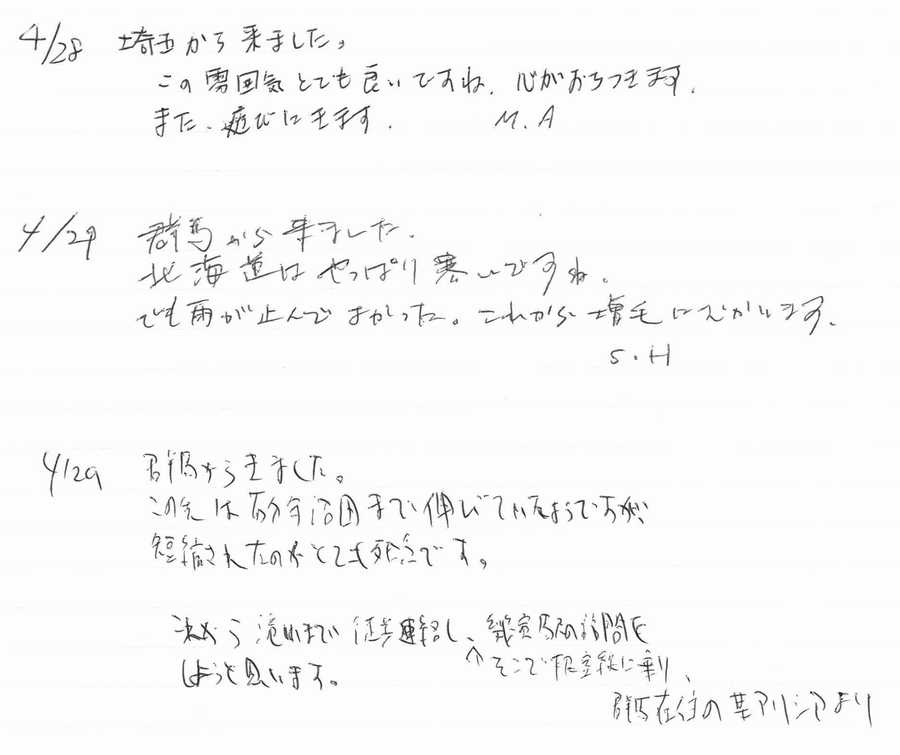 4/28 埼玉から来ました。
この雰囲気とても良いですね。心がおちつきます。
また、遊びにきます。 M.A
4/29 群馬から来ました。
北海道はやっぱり寒いですね。
でも雨が止んでよかった。これから増毛にむかいます。
S.H
4/29 群馬からきました。
この先は まで伸びていたようですが、
短縮されたのがとても残念です。
次から 滝川まで 徒歩連絡し、幾寅駅の訪問を
↑そこで根室線に乗り、
しようと思います。
群馬在住の 某アリシアより